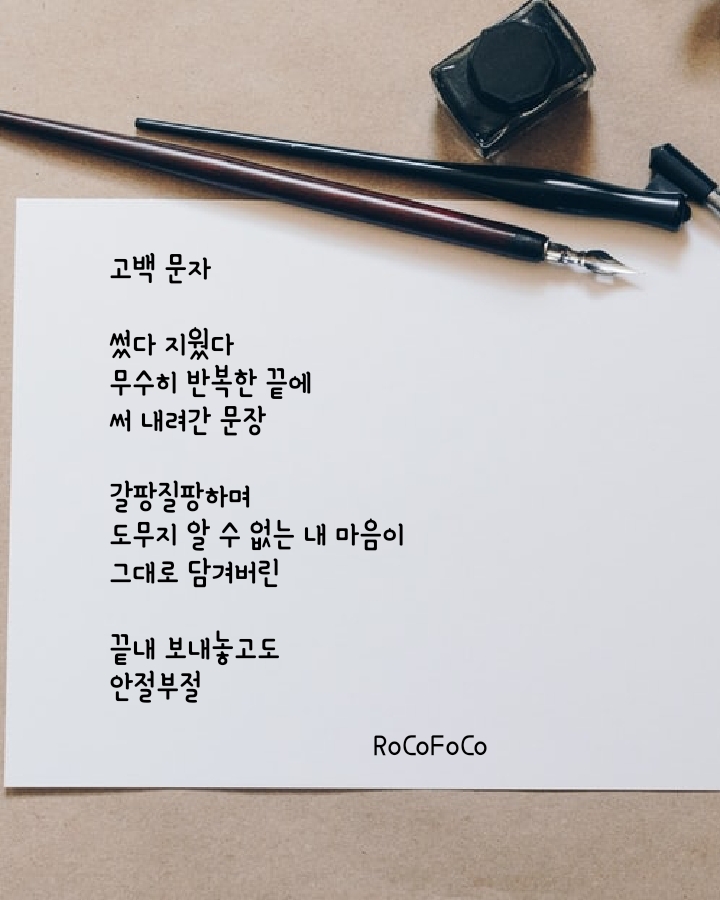 고백 문자
썼다 지웠다
무수히 반복한 끝에
써 내려간 문장
갈팡질팡하며
도무지 알 수 없는 내 마음이
그대로 담겨버린
끝내 보내놓고도
안절부절
RoCoFoCo